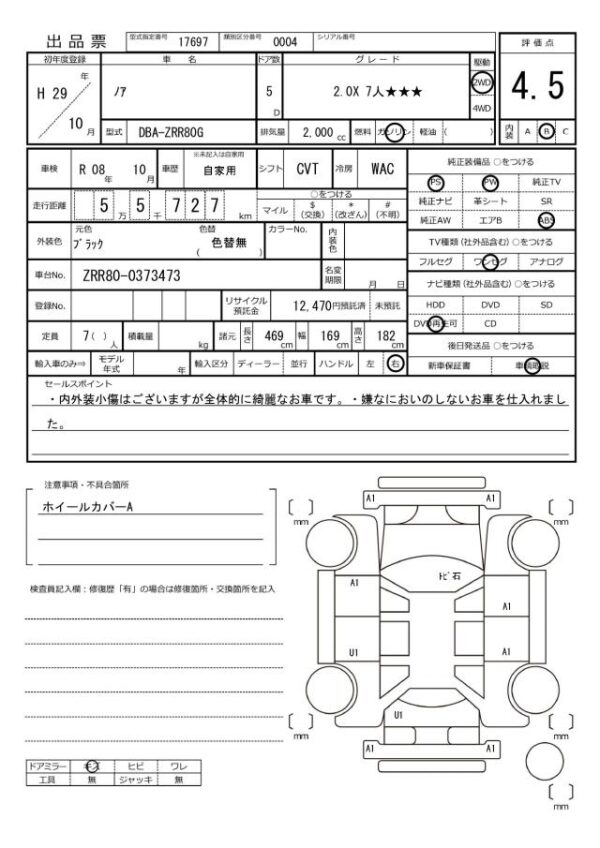 出品票 型式指定番号 17697 類別区分番号 0004 シリアル番号
評価点
初年度登録 車名 ドア数 グレード 駆動
H 29 年 10 月 ノア 5 D 2.0X 7人★★★ 2WD 4WD
4.5
型式 DBA-ZRR80G 排気量 2,000 cc 燃料 ガソリン 軽油 ( )
内装 A B C
車検 R 08 年 10 月 車歴 ※未記入は自家用 自家用 シフト CVT 冷房 WAC
走行距離 5 万 5 千 7 2 7 km ○をつける マイル $ (交換) * (改ざん) # (不明)
外装色 元色 ブラック 色替 色替無 ( ) カラーNo. 内装色
車台No. ZRR80-0373473 名変期限 月 日
登録No. リサイクル預託金 12,470円預託済 未預託
定員 7( ) 人 積載量 kg 諸元 長さ 469 cm 幅 169 cm 高さ 182 cm
輸入車のみ⇒ モデル年式 年 輸入区分 ディーラー 並行 ハンドル 左 右
純正装備品 ○をつける
PS PW 純正TV
純正ナビ 革シート SR
純正AW エアB ABS
TV種類(社外品含む)○をつける
フルセグ ワンセグ アナログ
ナビ種類(社外品含む)○をつける
HDD DVD SD
DVD再生可 CD
後日発送品 ○をつける
新車保証書 車輌取説
セールスポイント
・内外装小傷はございますが全体的に綺麗なお車です。・嫌なにおいのしないお車を仕入れまし
た。
注意事項・不具合箇所
ホイールカバーA
検査員記入欄:修復歴「有」の場合は修復箇所・交換箇所を記入
ドアミラー キズ ヒビ ワレ
工具 無 ジャッキ 無
A1 A1
[ ] mm [ ] mm
トビ石
A1 A1
U1 A1
U1
[ ] mm [ ] mm
A1 A1
[ ] mm